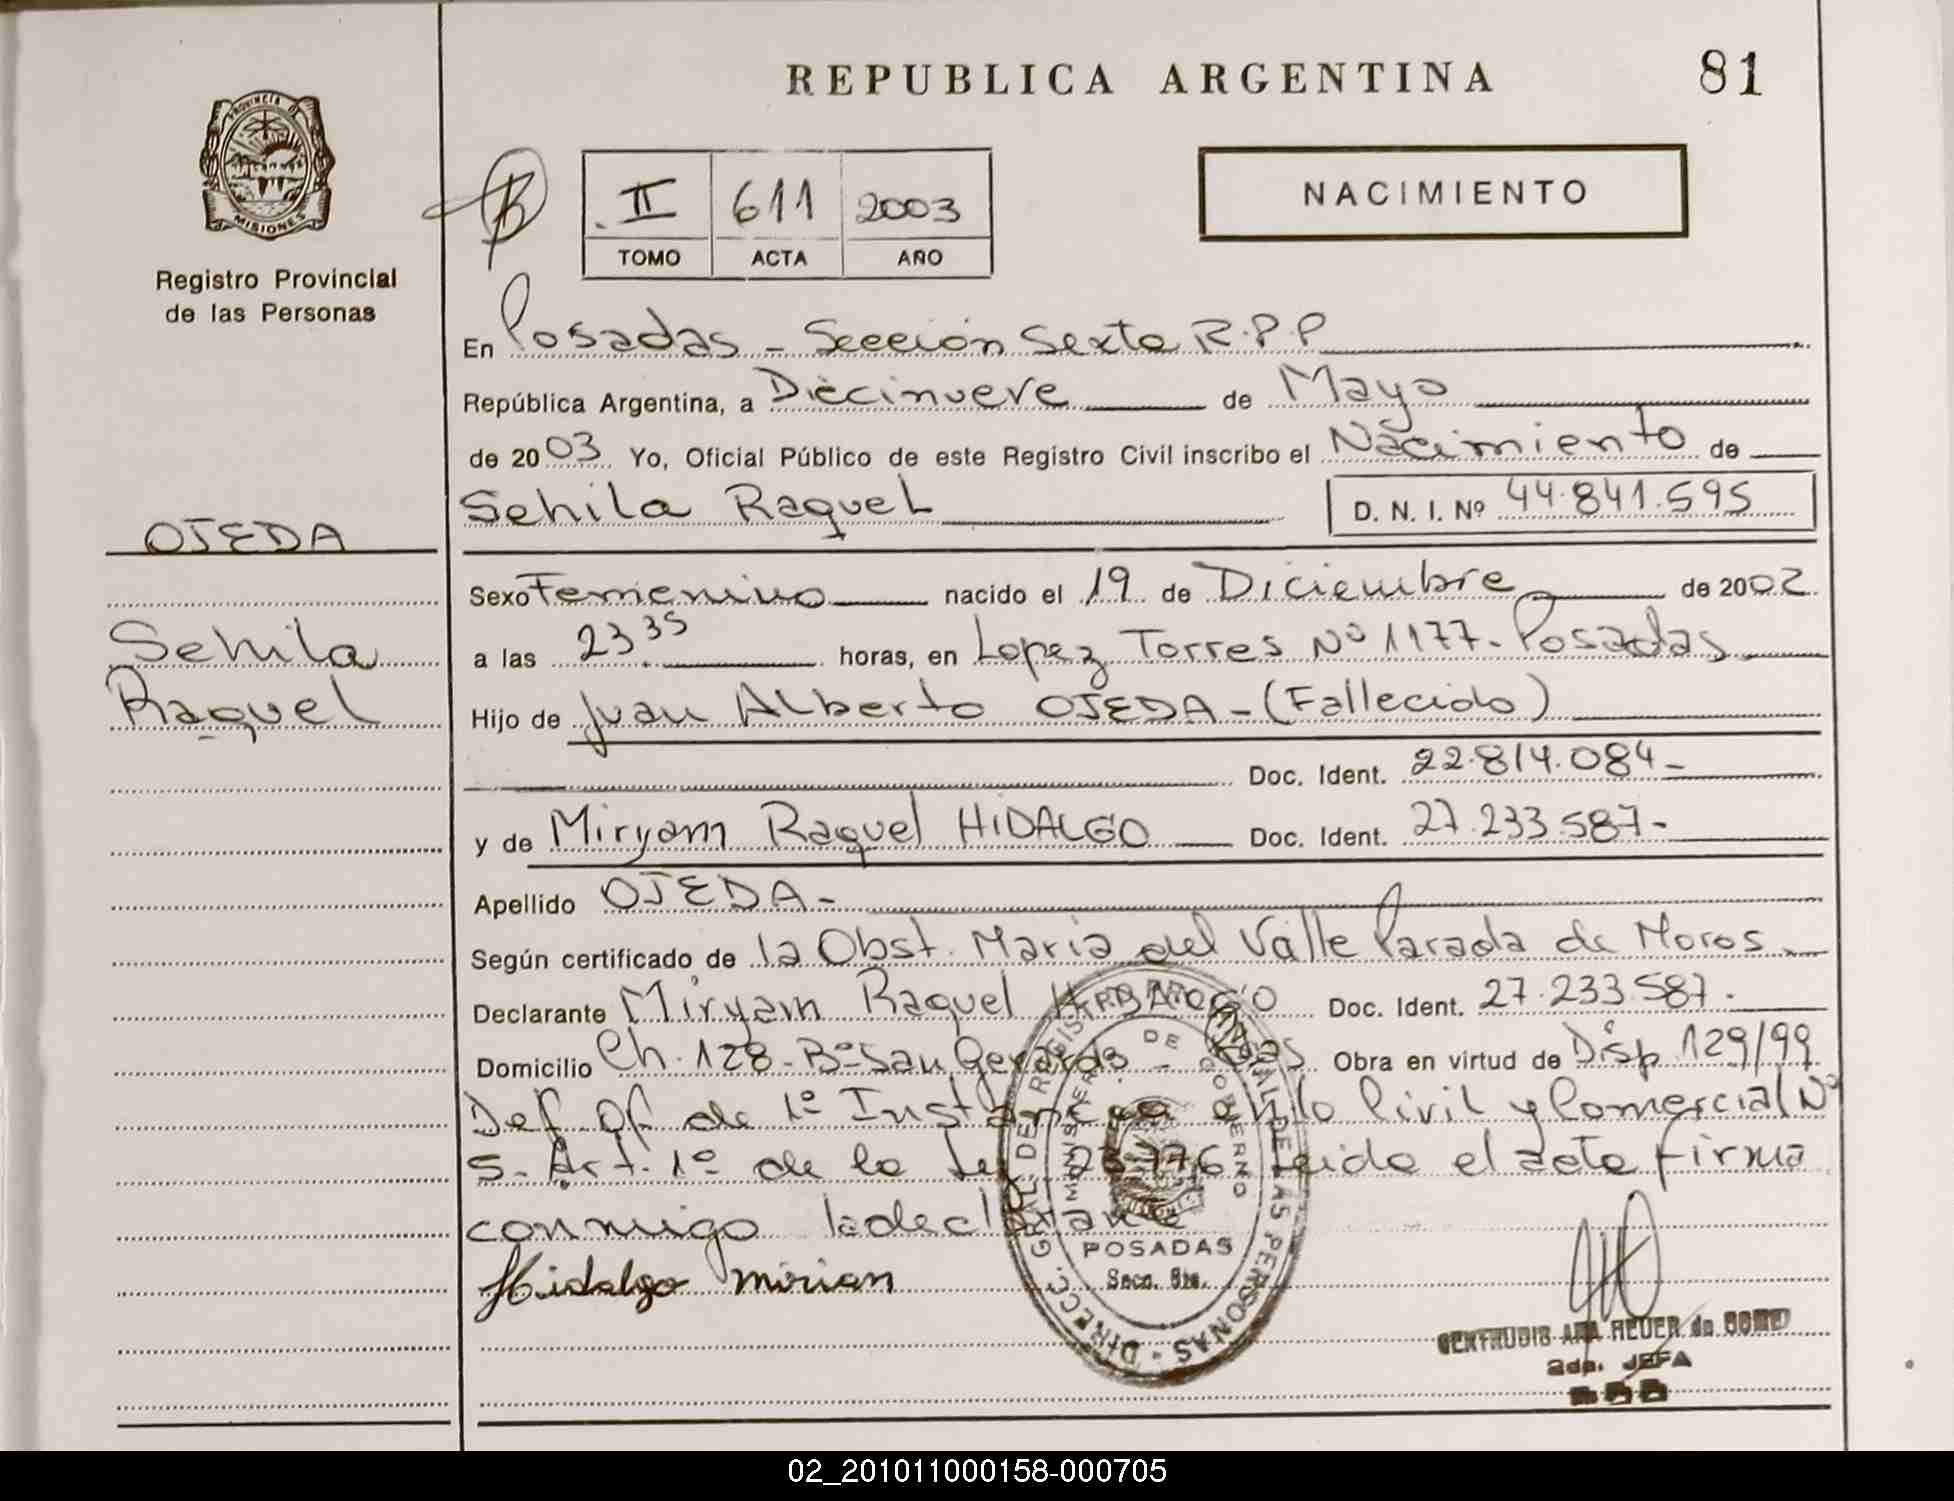 REPUBLICA ARGENTINA
81
PROVINCIA DE
MISIONES
Registro Provincial
de las Personas
II 611 2003
TOMO ACTA AÑO
NACIMIENTO
En Posadas - Sección Sexta R.P.P
República Argentina, a Diecinueve de Mayo
de 2003 Yo, Oficial Público de este Registro Civil inscribo el Nacimiento de
Sehila Raquel D. N. I. Nº 44.841.595
OJEDA
Sehila
Raquel
Sexo Femenino nacido el 19 de Diciembre de 2002
a las 23 35 horas, en Lopez Torres Nº 1177 - Posadas
Hijo de Juan Alberto OJEDA - (Fallecido)
Doc. Ident. 22.814.084 -
y de Miryam Raquel HIDALGO Doc. Ident. 27.233.587 -
Apellido OJEDA -
Según certificado de la Obst. Maria del Valle Parada de Moros
Declarante Miryam Raquel HIDALGO Doc. Ident. 27.233.587.
Domicilio Ch. 128 - Bº San Gerardo - Obra en virtud de Disp 129/99
Def. Of. de 1º Instancia Civil y Comercial Nº
5 - Art. 1º de la Ley leida el acta firma
conmigo la declarante
Hidalgo mirian
DIRECC. GRAL DEL REGISTRO DE LAS PERSONAS
MINISTERIO DE GOBIERNO
POSADAS
Secc. 6ta.
GERTRUDIS ANA de
2da. JEFA
02_201011000158-000705